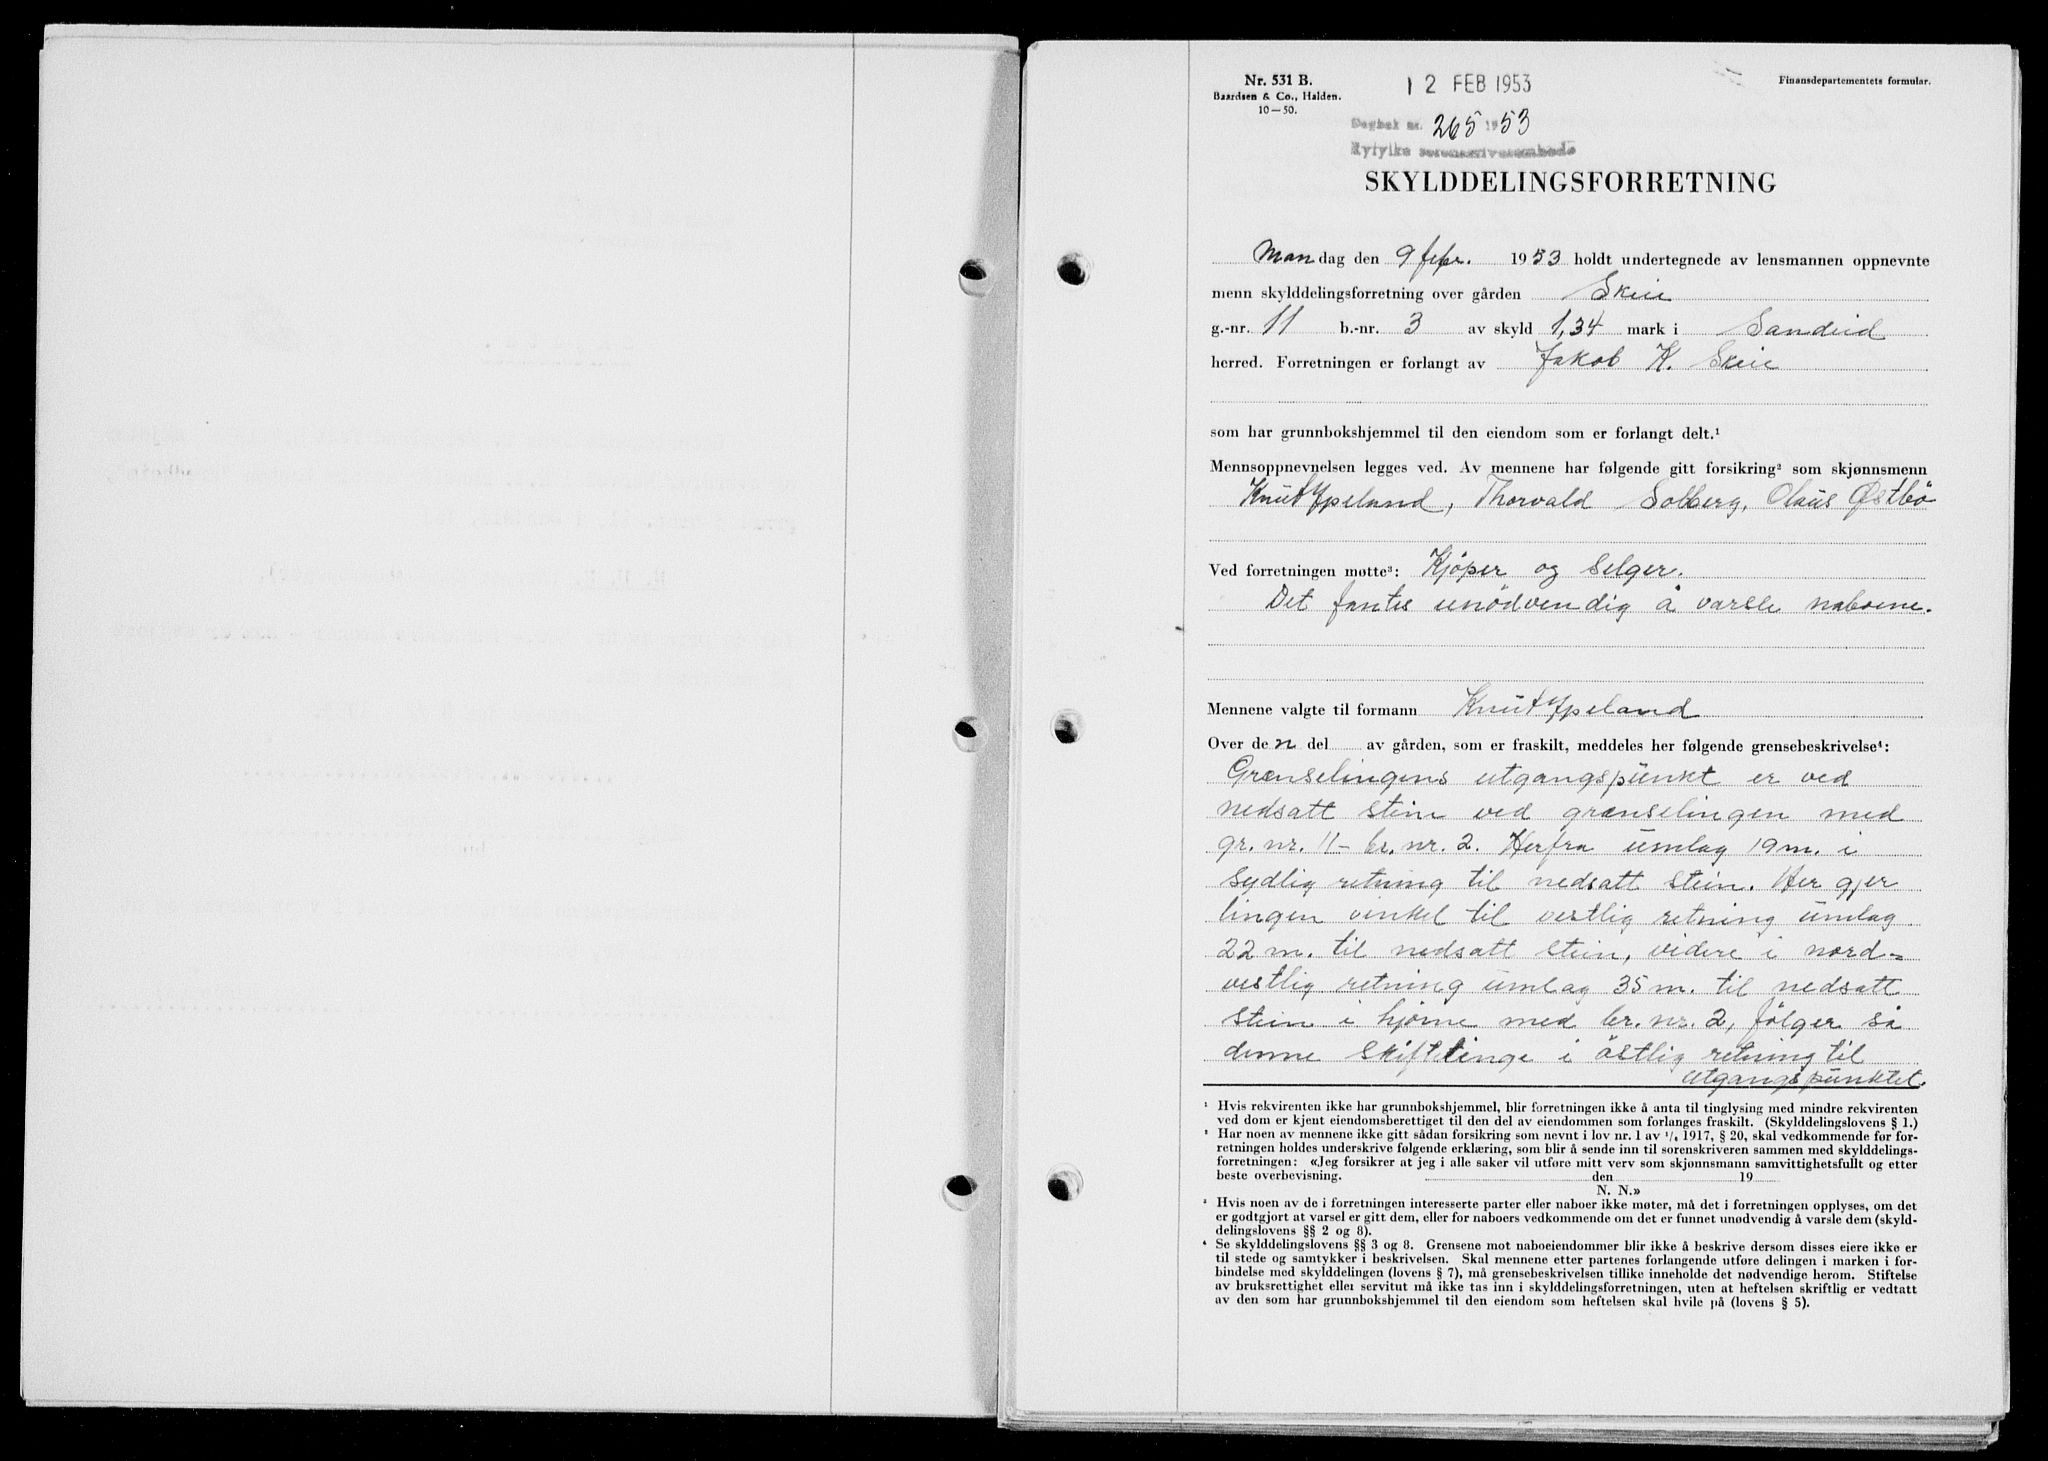 Nr. 531 B.
Baardsen & Co., Halden.
10—50.
12 FEB 1953
Finansdepartementets formular.
Dagbok nr. 265 1953
Ryfylke sorenskriverembede
SKYLDDELINGSFORRETNING
Mandag den 9 febr. 1953 holdt undertegnede av lensmannen oppnevnte
menn skylddelingsforretning over gården Skeie
g.-nr. 11 b.-nr. 3 av skyld 1,34 mark i Sandeid
herred. Forretningen er forlangt av Jakob K. Skeie
som har grunnbokshjemmel til den eiendom som er forlangt delt.¹
Mennsoppnevnelsen legges ved. Av mennene har følgende gitt forsikring² som skjønnsmenn
Knut Ypsland, Thorvald Solberg, Claus Østbö
Ved forretningen møtte³: Kjöper og Selger.
Det fantes unödvendig å varsle naboene.
Mennene valgte til formann Knut Ypsland
Over den del av gården, som er fraskilt, meddeles her følgende grensebeskrivelse⁴:
Grenselingens utgangspunkt er ved
nedsatt stein ved grenselingen med
gr. nr. 11 – br. nr. 2. Herfra umlag 19 m. i
sydlig retning til nedsatt stein. Her gjer
lingen vinkel til vestlig retning umlag
22 m. til nedsatt stein, videre i nord=
vestlig retning umlag 35 m. til nedsatt
stein i hjörne med br. nr. 2, fölger så
denne skiftelinge i östlig retning til
utgangspunktet.
¹ Hvis rekvirenten ikke har grunnbokshjemmel, blir forretningen ikke å anta til tinglysing med mindre rekvirenten
ved dom er kjent eiendomsberettiget til den del av eiendommen som forlanges fraskilt. (Skylddelingslovens § 1.)
² Har noen av mennene ikke gitt sådan forsikring som nevnt i lov nr. 1 av ¹/₆ 1917, § 20, skal vedkommende før for-
retningen holdes underskrive følgende erklæring, som blir å sende inn til sorenskriveren sammen med skylddelings-
forretningen: «Jeg forsikrer at jeg i alle saker vil utføre mitt verv som skjønnsmann samvittighetsfullt og etter
beste overbevisning. den 19
N. N.»
³ Hvis noen av de i forretningen interesserte parter eller naboer ikke møter, må det i forretningen opplyses, om det
er godtgjort at varsel er gitt dem, eller for naboers vedkommende om det er funnet unødvendig å varsle dem (skyld-
delingslovens §§ 2 og 8).
⁴ Se skylddelingslovens §§ 3 og 8. Grensene mot naboeiendommer blir ikke å beskrive dersom disses eiere ikke er
til stede og samtykker i beskrivelsen. Skal mennene etter partenes forlangende utføre delingen i marken i for-
bindelse med skylddelingen (lovens § 7), må grensebeskrivelsen tillike inneholde det nødvendige herom. Stiftelse
av bruksrettighet eller servitut må ikke tas inn i skylddelingsforretningen, uten at heftelsen skriftlig er vedtatt
av den som har grunnbokshjemmel til den eiendom som heftelsen skal hvile på (lovens § 5).